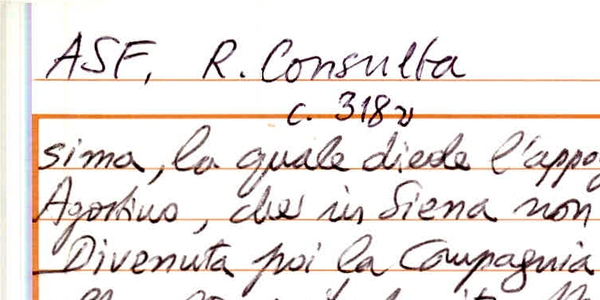 ASF, R. Consulta
c. 318v
sima, la quale diede l'appog
Agostino, che in Siena non
Divenuta poi la Compagnia